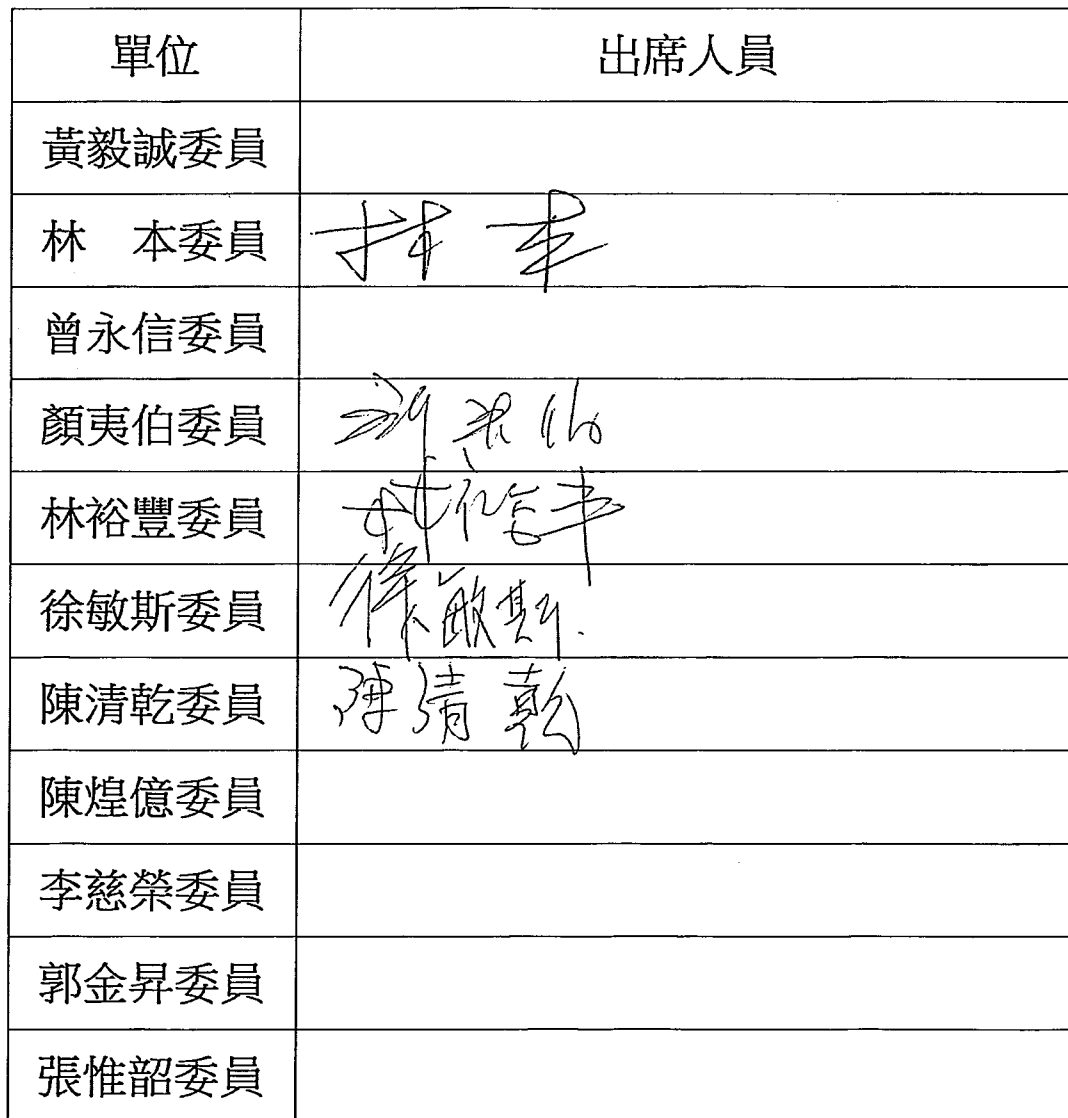 單位 出席人員
黃毅誠委員
林 本委員 林 本
曾永信委員
顏夷伯委員
林裕豐委員
徐敏斯委員 徐敏斯
陳清乾委員 陳清乾
陳煌億委員
李慈榮委員
郭金昇委員
張惟韶委員